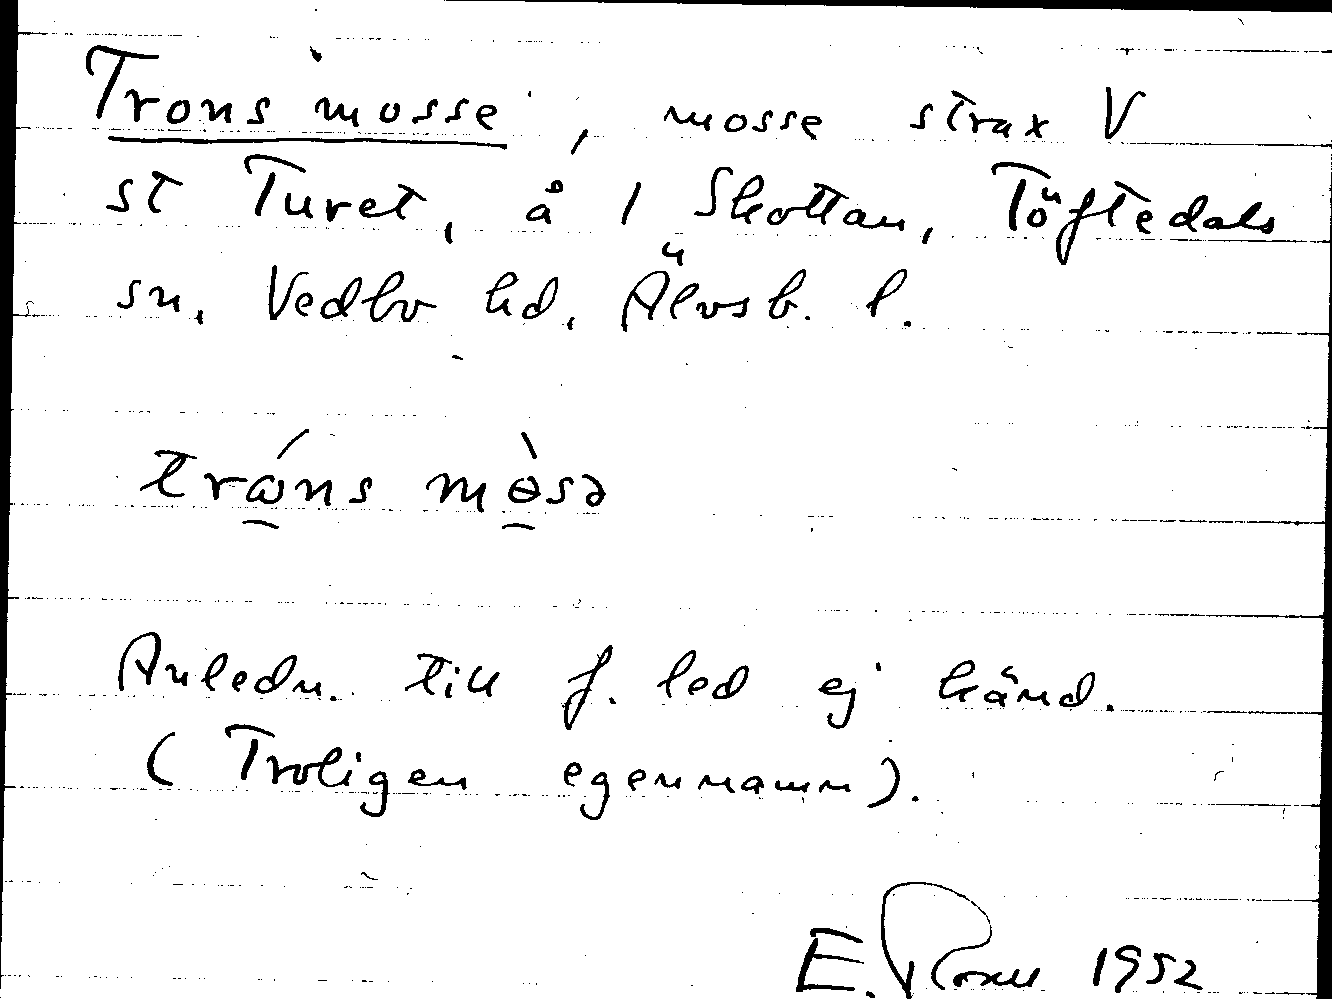 Trons mosse, mosse strax V
st Turet, å 1 Skottan, Töftedals
sn, Vedbo hd, Älvsb. l.
trώns mòsə
Anledn. till f. led ej känd.
(Troligen egennamn).
E. 1952